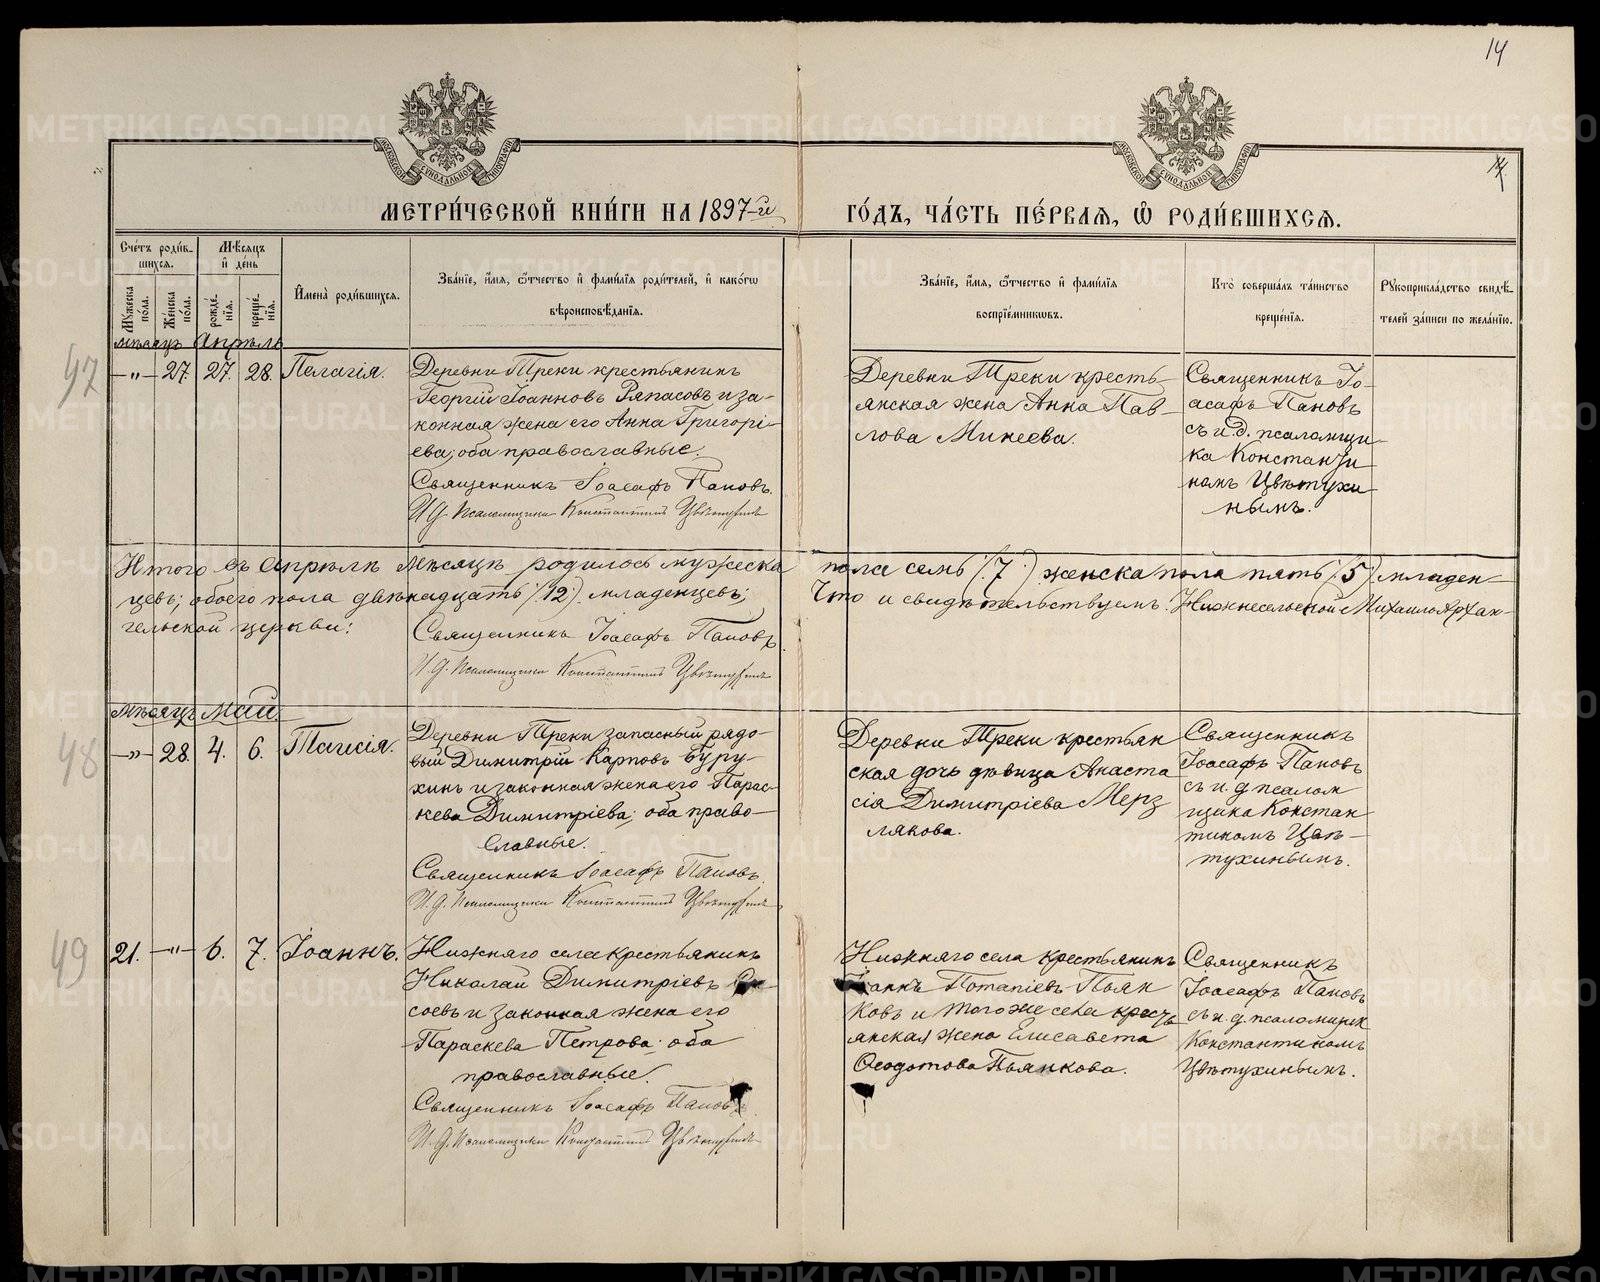 14
МЕТРИ́ЧЕСКОЙ КНИ́ГИ НА 1897-й ГО́ДЪ, ЧА́СТЬ ПЕ́РВАЯ, Ѡ РОДИ́ВШИХСЯ.
Сче́тъ роди́в-
шихся.
Мѣ́сяцъ
и де́нь
И҆мена̀ роди́вшихся.
Зва́нїе, и҆́мя, ѻ҆́тчество и҆ фами́лїя роди́телей, и҆ како́гѡ
вѣроисповѣ́данїя.
Зва́нїе, и҆́мя, ѻ҆́тчество и҆ фами́лїя
воспрїе́мникѡвъ.
Кто̀ соверша́лъ та́инство
креще́нїя.
Рꙋкоприкла́дство свидѣ́-
телей за́писи по жела́нїю.
Мꙋ́жеска
по́ла.
Же́нска
по́ла.
рожде́-
нїя.
креще́-
нїя.
мѣсяцъ Апрѣль
47
—"— 27. 27. 28. Пелагія.
Деревни Треки крестьянинъ
Георгій Іоанновъ Ряпасовъ и за-
конная жена его Анна Григорі-
ева; оба православные.
Священникъ Іоасафъ Пановъ.
И.д. Псаломщика Константинъ Цвѣтухинъ
Деревни Треки кресть-
янская жена Анна Пав-
лова Минеева.
Священникъ Іо-
асафъ Пановъ
съ и.д. псаломщи-
ка Константи
номъ Цвѣтухи-
нымъ.
Итого въ Апрѣлѣ мѣсяцѣ родилось мужеска пола семь (7) женска пола пять (5) младен-
цевъ; обоего пола двѣнадцать (12) младенцевъ; Что и свидѣтельствуемъ. Нижнесельской Михаило Архан-
гельской церкви:
Священникъ Іоасафъ Пановъ.
И.д. Псаломщика Константинъ Цвѣтухинъ
мѣсяцъ май.
48
—"— 28. 4. 6. Таисія.
Деревни Треки запасный рядо-
вый Димитрій Карповъ Буру-
хинъ и законная жена его Парас-
кева Димитріева; оба право-
славные.
Священникъ Іоасафъ Пановъ.
И.д. Псаломщика Константинъ Цвѣтухинъ
Деревни Треки крестьян
ская дочь дѣвица Анаста
сія Димитріева Мерз
лякова.
Священникъ
Іоасафъ Пановъ
съ и.д. псалом
щика Констан
тиномъ Цвѣ-
тухинымъ.
49
21. —"— 6. 7. Іоаннъ.
Нижняго села крестьянинъ
Николай Димитріевъ
соевъ и законная жена его
Параскева Петрова; оба
православные.
Священникъ Іоасафъ Пановъ
И.д. Псаломщика Константинъ Цвѣтухинъ
Нижняго села крестьянинъ
Іоаннъ Потапіевъ Пьян
ковъ и того же села кресть
янская жена Елисавета
Ѳеодотова Пьянкова.
Священникъ
Іоасафъ Пановъ
съ и.д. псаломщик
Константиномъ
Цвѣтухинымъ.
METRIKI.GASO-URAL.RU